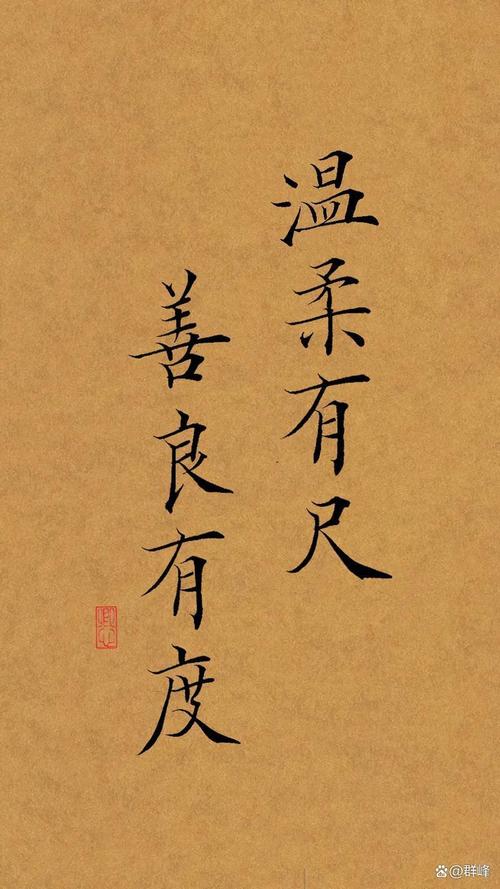 温柔有尺
善良有度
@群峰